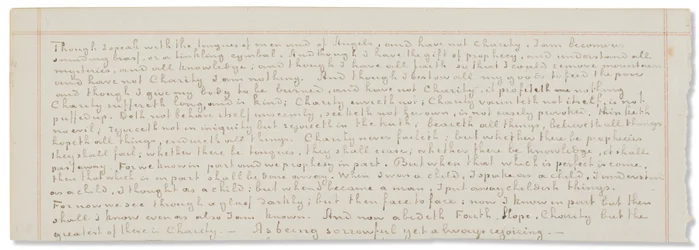 Though I speak with the tongues of men and of Angels, and have not Charity. I am become as
sounding brass, or a tinkling cymbal. And though I have the gift of prophecy, and understand all
mysteries, and all knowledge; and though I have all faith so that I could remove mountains
and have not Charity I am nothing. And though I bestow all my goods to feed the poor
and though I give my body to be burned, and have not Charity, it profiteth me nothing
Charity suffereth long, and is kind; Charity envieth not; Charity vaunteth not itself, is not
puffed up. Doth not behave itself unseemly, seeketh not her own, is not easily provoked, thinketh
no evil; rejoiceth not in iniquity but rejoiceth in the truth, beareth all things, believeth all things
hopeth all things, endureth all things. Charity never faileth; but whether there be prophecies
they shall fail, whether there be tongues, they shall cease, whether there be knowledge, it shall
pass away. For we know in part and we prophecy in part. But when that which is perfect is come
then that which is in part shall be done away. When I was a child, I spake as a child, I understood
as a child, I thought as a child; but when I became a man, I put away childish things.
For now we see through a glass, darkly; but then face to face; now I know in part but then
shall I know even as also I am known. And now abideth Faith, Hope, Charity but the
greatest of these is Charity. — As being sorrowful yet always rejoicing. —